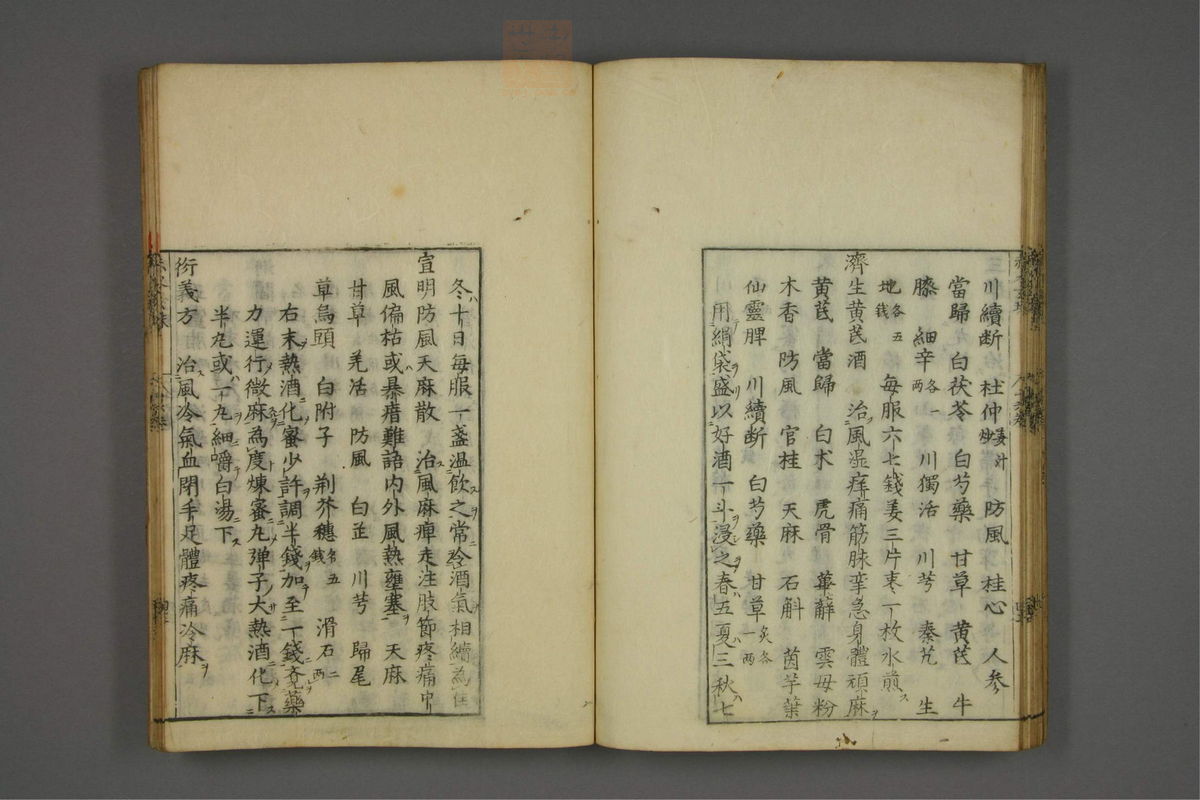 川續断 杜仲姜汁炒 防風 桂心 人参
當歸 白茯苓 白芍藥 甘草 黄芪 牛
膝 細辛各一兩 川獨活 川芎 秦艽 生
地各五錢 每服六七錢姜三片枣一枚水煎ス
濟生黄芪酒 治風湿痺痛筋脉挛急身體頑麻ヲ
黄芪 當歸 白术 虎骨 萆薢 雲母粉
木香 防風 官桂 天麻 石斛 茵芋葉
仙靈脾 川續断 白芍藥 甘草炙各一兩
用絹袋盛以好酒一斗浸之春五夏三秋七
冬十日每服一盞温飲之常令酒氣相續為佳
宣明防風天麻散 治風麻痺走注肢節疼痛中
風偏枯或暴瘖難語内外風熱壅塞 天麻
甘草 羌活 防風 白芷 川芎 歸尾
草烏頭 白附子 荆芥穗各五錢 滑石二兩
右末熱酒化蜜少許調半錢加至一錢竟藥
力運行微麻為度煉蜜丸弾子大熱酒化下
半丸或一丸細嚼白湯下
衍義方 治風冷氣血閉手足體疼痛冷麻ヲ